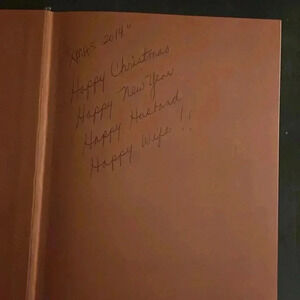 "Xmas 2014."
Happy Christmas
Happy New Year
Happy Husband
Happy Wife !!